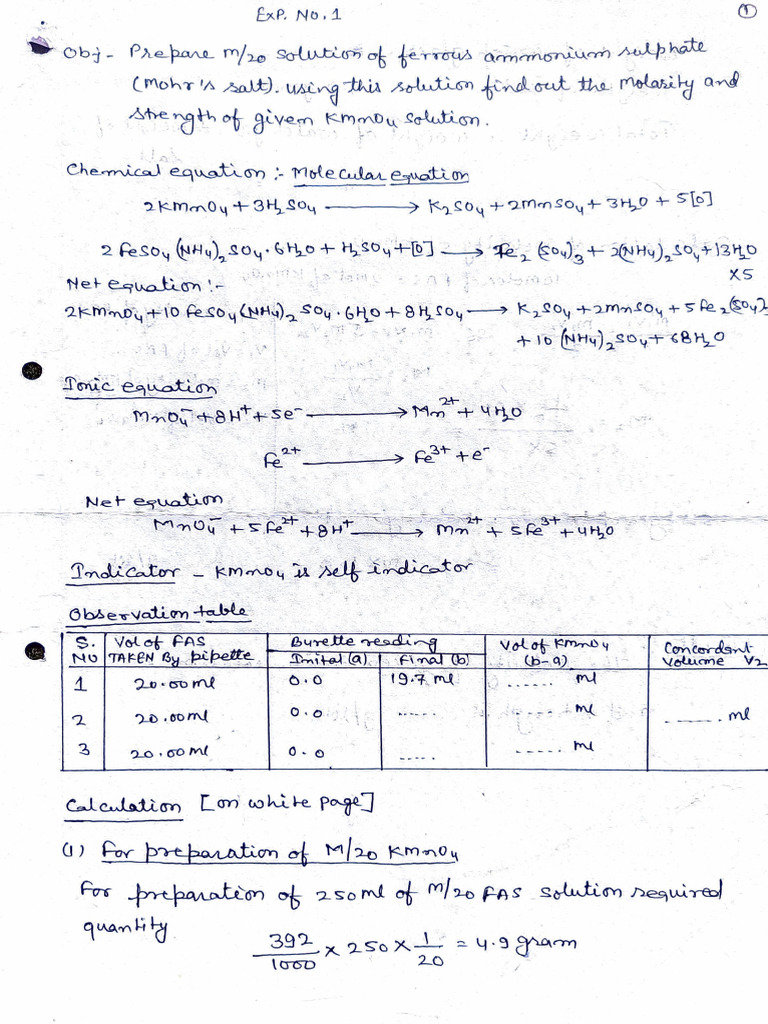 Exp. No. 1
1
Obj - Prepare M/20 solution of ferrous ammonium sulphate
(Mohr's salt). using this solution find out the molarity and
strength of given KMnO4 solution.
Chemical equation :- Molecular equation
2KMnO4 + 3H2SO4 ⟶ K2SO4 + 2MnSO4 + 3H2O + 5[O]
2 FeSO4 (NH4)2 SO4 · 6H2O + H2SO4 + [O] ⟶ Fe2 (SO4)3 + 2(NH4)2 SO4 + 13H2O
×5
Net equation :-
2KMnO4 + 10 FeSO4 (NH4)2 SO4 · 6H2O + 8H2SO4 ⟶ K2SO4 + 2MnSO4 + 5Fe2(SO4)
+ 10 (NH4)2 SO4 + 68H2O
Ionic equation
MnO4⁻ + 8H⁺ + 5e⁻ ⟶ Mn²⁺ + 4H2O
Fe²⁺ ⟶ Fe³⁺ + e⁻
Net equation
MnO4⁻ + 5Fe²⁺ + 8H⁺ ⟶ Mn²⁺ + 5Fe³⁺ + 4H2O
Indicator - KMnO4 is self indicator
Observation table
S. NO Vol of FAS TAKEN By pipette Burette reading Inital (a) Final (b) Vol of KMnO4 (b-a) Concordant volume V2
1 20.00ml 0.0 19.7 ml ...... ml
2 20.00ml 0.0 ..... ...... ml ...... ml
3 20.00ml 0.0 ..... ...... ml
Calculation [on white page]
(1) For preparation of M/20 KMnO4
For preparation of 250ml of M/20 FAS solution required
quantity
392/1000 × 250 × 1/20 = 4.9 gram